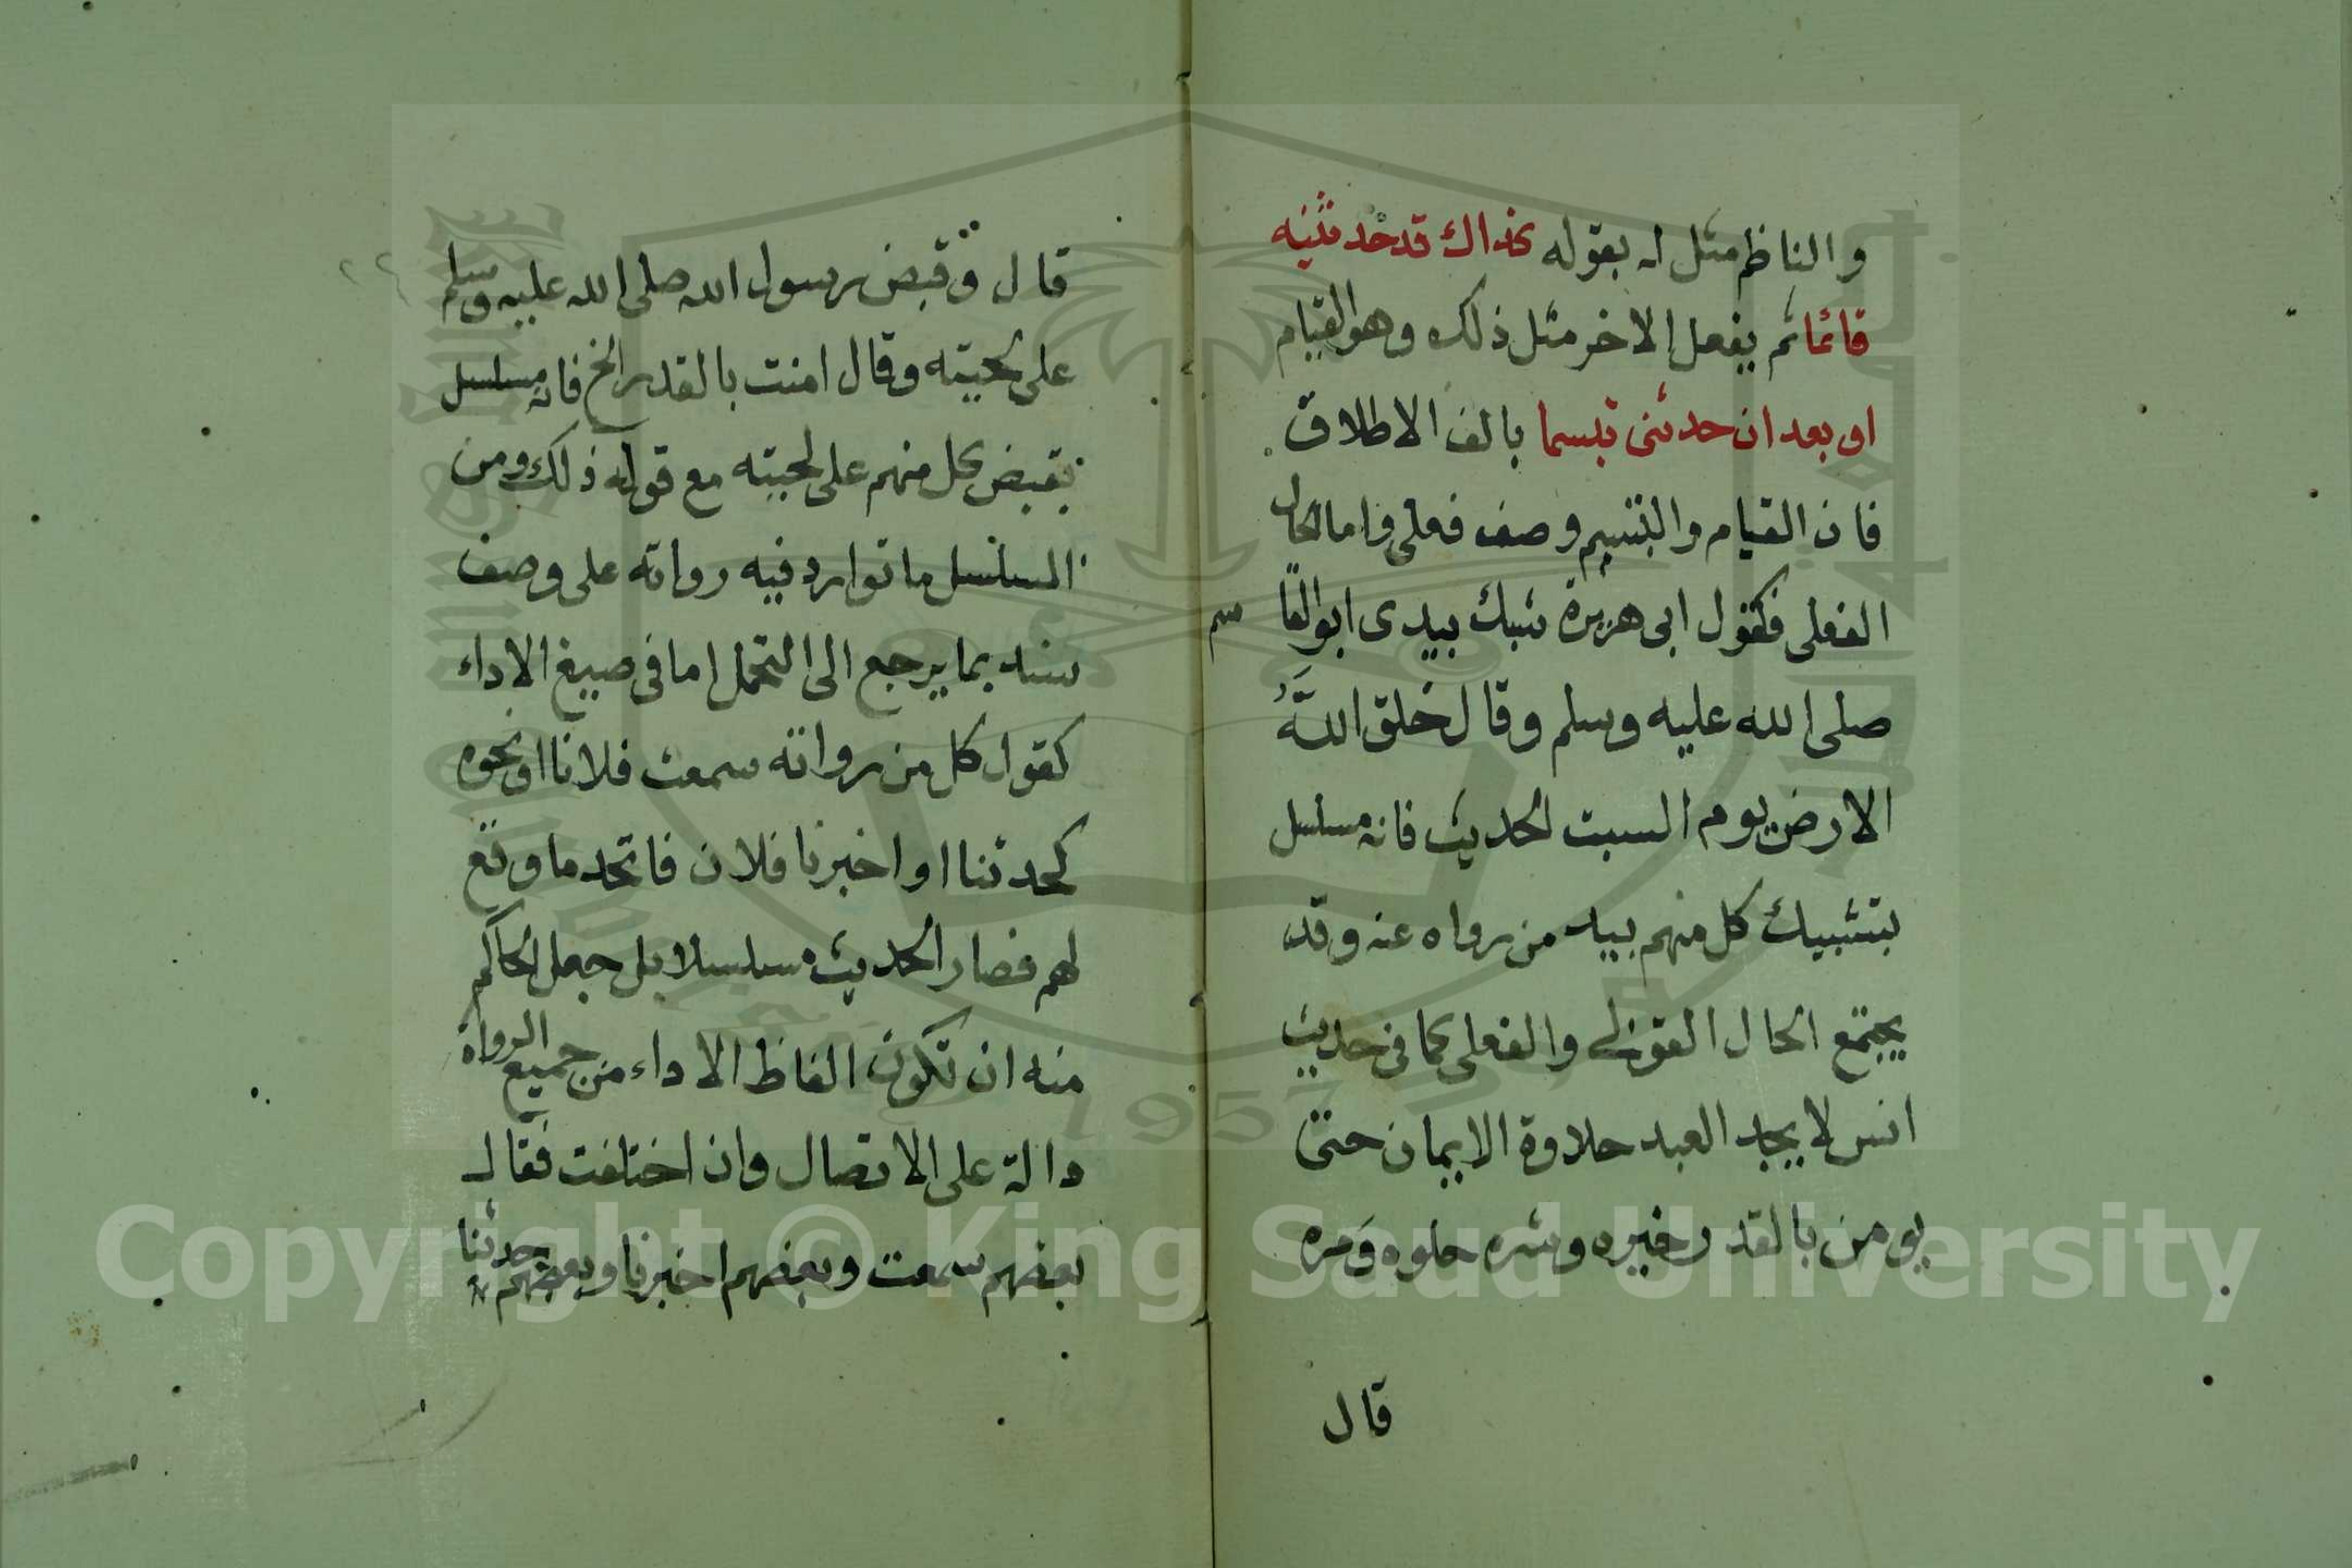 والناظم مثل له بقوله كذاك قد حدثنيه
قائما ثم يفعل الاخر مثل ذلك وهو القيام
او بعد ان حدثنى تبسما بالف الاطلاق
فان القيام والتبسم وصف فعلى واما الحال
الفعلى فكقول ابى هريرة شبك بيدى ابوالقا سم
صلى الله عليه وسلم وقال خلق اللَّهُ
الارض يوم السبت الحديث فانه مسلسل
بتشبيك كل منهم بيد من رواه عنه وقد
يجتمع الحال القولى والفعلى كما فى حديث
انس لا يجد العبد حلاوة الايمان حتى
يومن بالقدر خيره وشره حلوه ومره
قال
قال وقبض رسول الله صلى الله عليه وسلم
على لحيته وقال امنت بالقدر الخ فانه مسلسل
بقبض كل منهم على لحيته مع قوله ذلك ومن
المسلسل ما توارد فيه رواته على وصف
سند بما يرجع الى التحمل اما فى صيغ الاداء
كقول كل من رواته سمعت فلانا او نحوه
كحدثنا او اخبرنا فلان فاتحد ما وقع
لهم فصار الحديث مسلسلا بل جعل الحاكم
منه ان تكون الفاظ الاداء من جميع الرواة
دالة على الاتصال وان اختلفت فقال
بعضهم سمعت وبعضهم اخبرنا وبعضهم حدثنا
1957
Copyright © King Saud University